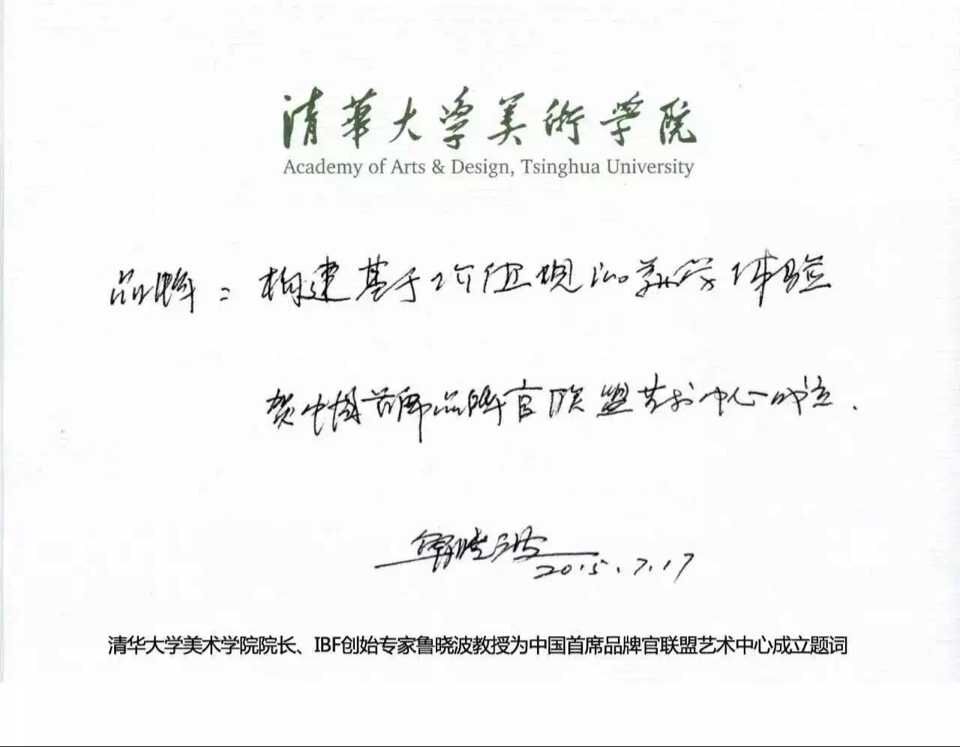 清華大学美術学院
Academy of Arts & Design, Tsinghua University
品牌：构建基于价值观的美学体验
贺中国首席品牌官联盟艺术中心成立.
鲁晓波
2015.7.17
清华大学美术学院院长、IBF创始专家鲁晓波教授为中国首席品牌官联盟艺术中心成立题词